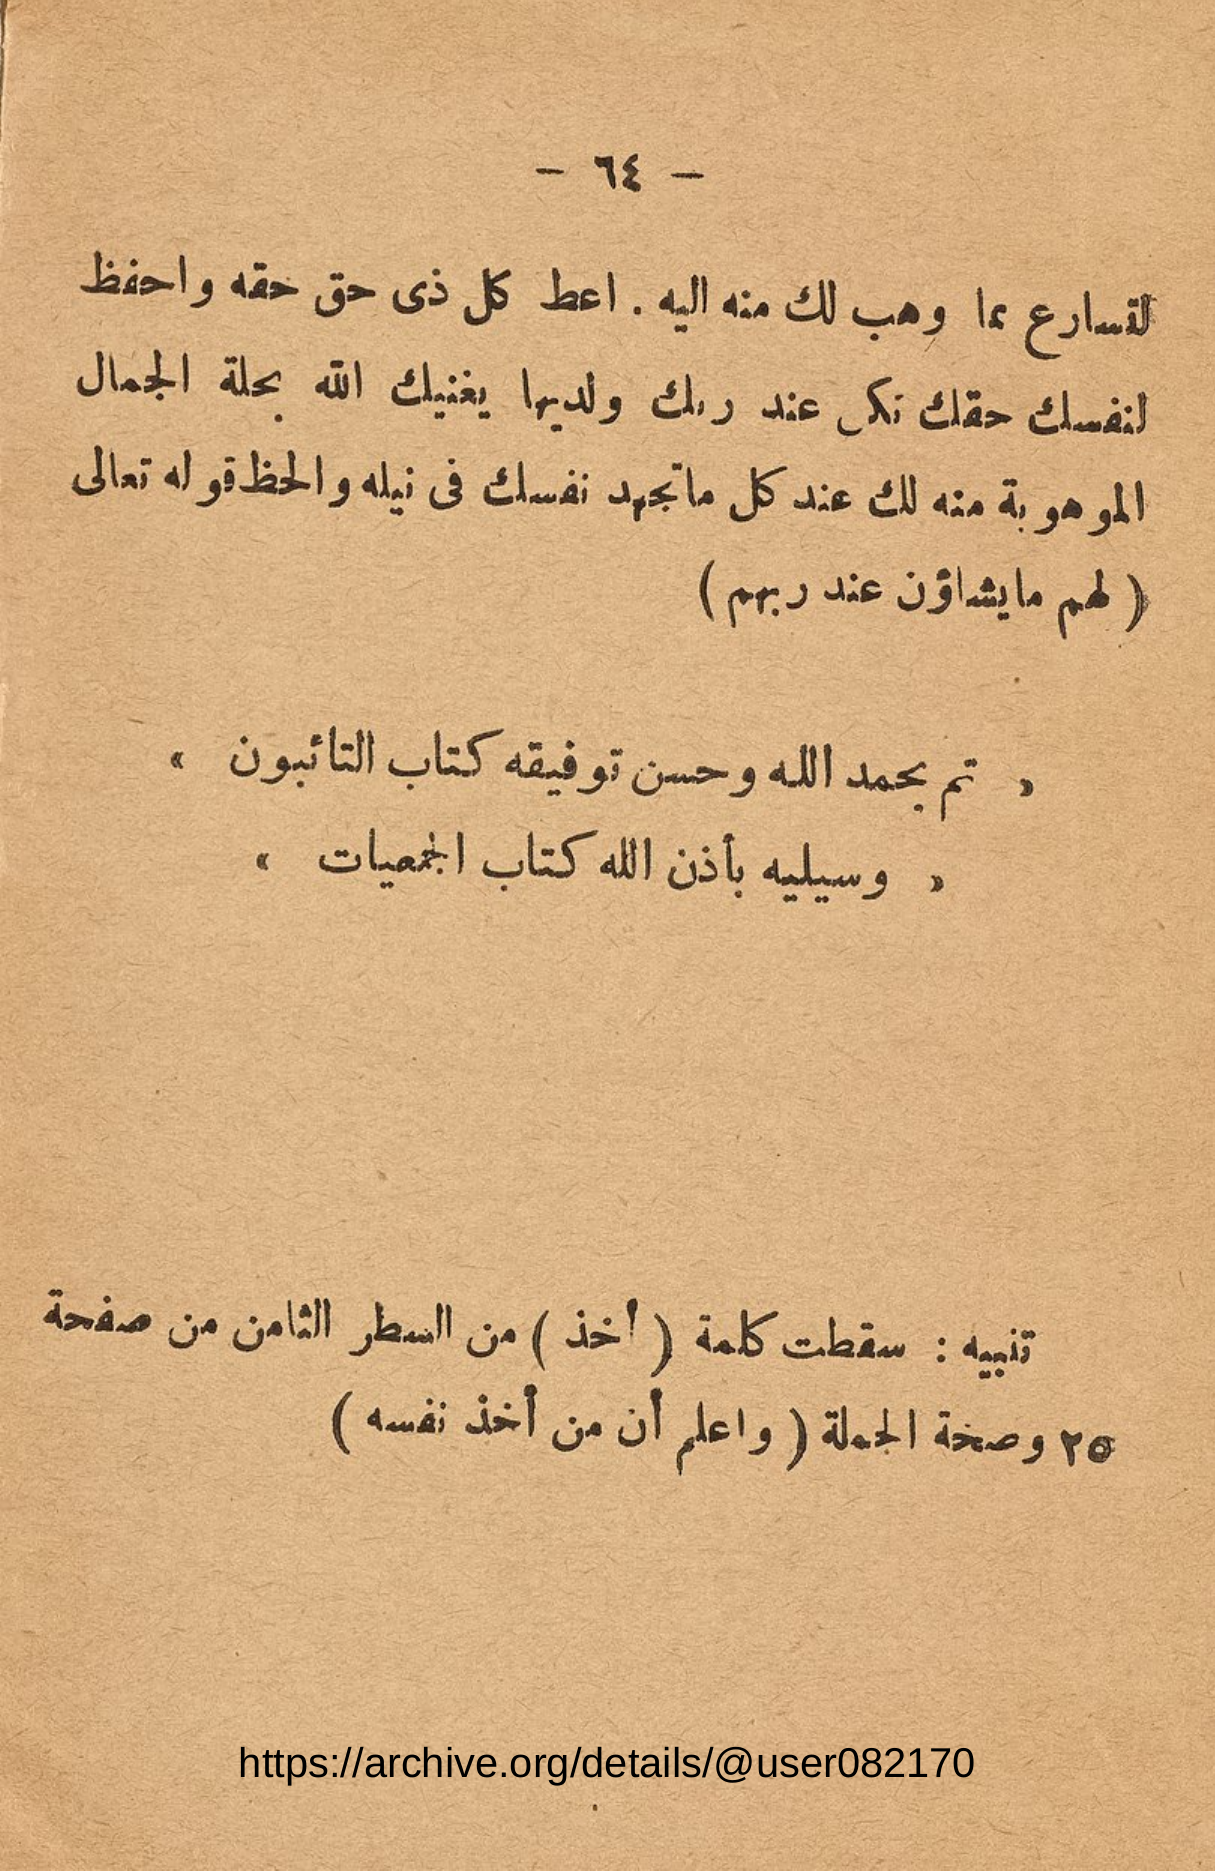 — ٦٤ —
لتسارع بما وهب لك منه اليه . اعط كل ذى حق حقه واحفظ
لنفسك حقك تكن عند ربك ولديها يغنيك الله بحلة الجمال
الموهوبة منه لك عند كل ماتجهد نفسك فى نيله والحظ قوله تعالى
( لهم مايشاؤن عند ربهم )
« تم بحمد الله وحسن توفيقه كتاب التائبون »
« وسيليه بأذن الله كتاب الجمعيات »
تنبيه : سقطت كلمة ( أخذ ) من السطر الثامن من صفحة
٢٥ وصحة الجملة ( واعلم أن من أخذ نفسه )
https://archive.org/details/@user082170